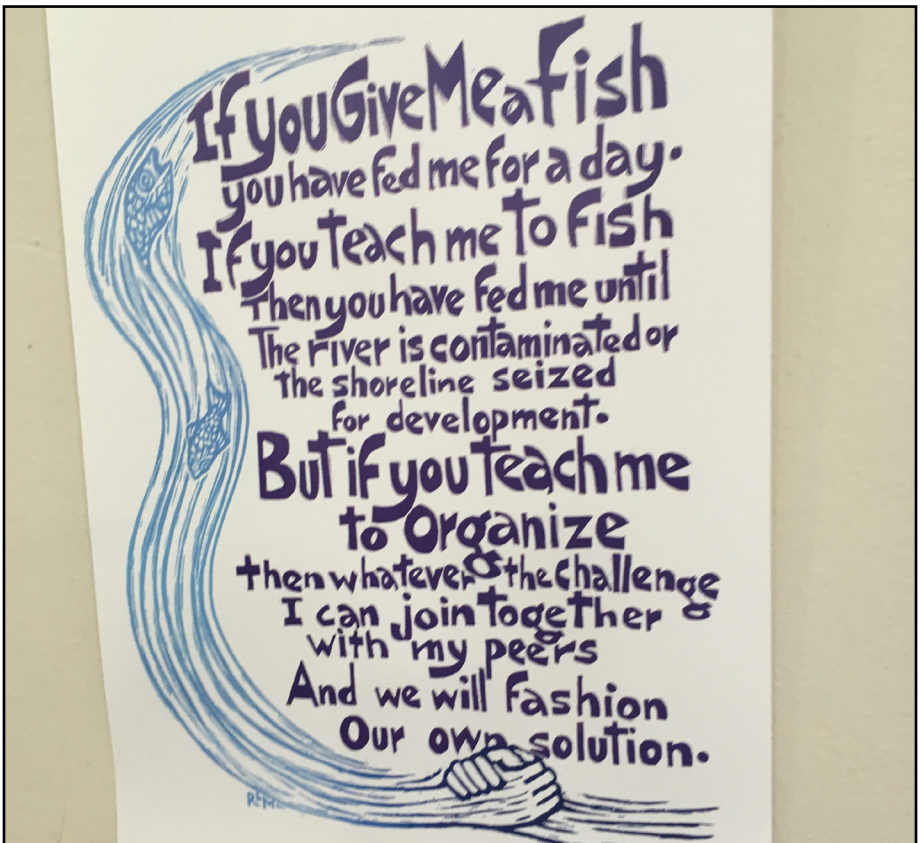 If you Give Me a Fish
you have fed me for a day.
If you Teach me To Fish
Then you have fed me until
The river is contaminated or
the shoreline seized
for development.
But if you teach me
to Organize
then whatever the challenge
I can join together
with my peers
And we will fashion
Our own solution.